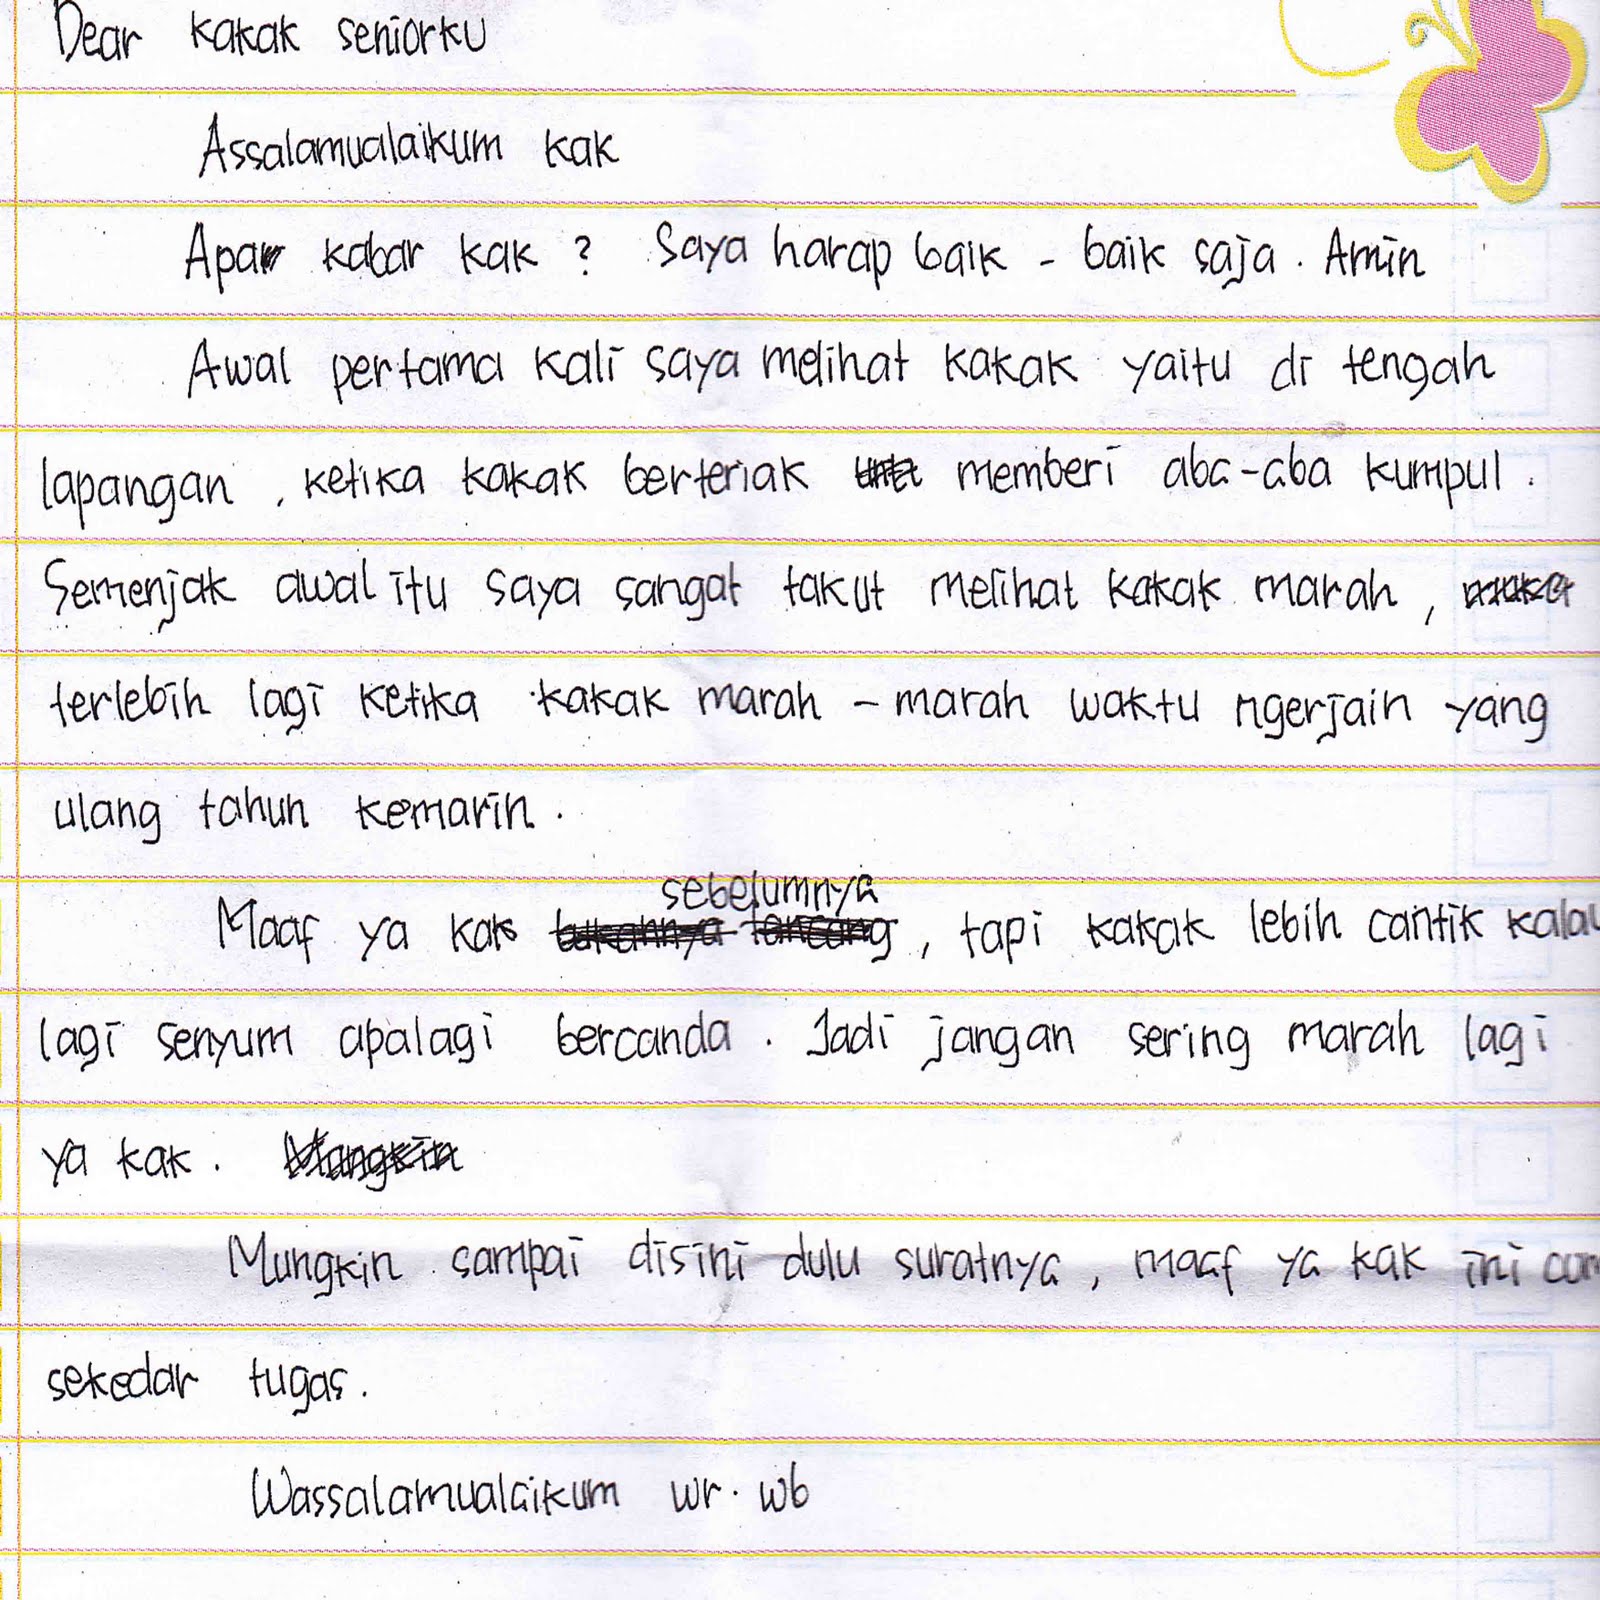 Dear kakak seniorku
Assalamualaikum kak
Apa kabar kak ? Saya harap baik - baik saja. Amin
Awal pertama kali saya melihat kakak yaitu di tengah
lapangan , ketika kakak berteriak memberi aba-aba kumpul .
Semenjak awal itu saya sangat takut melihat kakak marah ,
terlebih lagi ketika kakak marah - marah waktu ngerjain yang
ulang tahun kemarin .
sebelumnya
Maaf ya kak , tapi kakak lebih cantik kalau
lagi senyum apalagi bercanda . Jadi jangan sering marah lagi
ya kak .
Mungkin sampai disini dulu suratnya , maaf ya kak ini
sekedar tugas .
Wassalamualaikum wr . wb